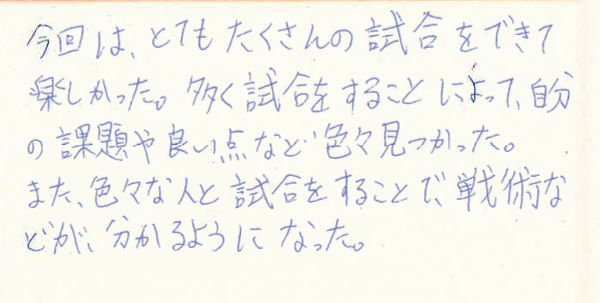 今回は、とてもたくさんの試合をできて
楽しかった。多く試合をすることによって、自分
の課題や良い点など色々見つかった。
また、色々な人と試合をすることで、戦術な
どが、分かるようになった。